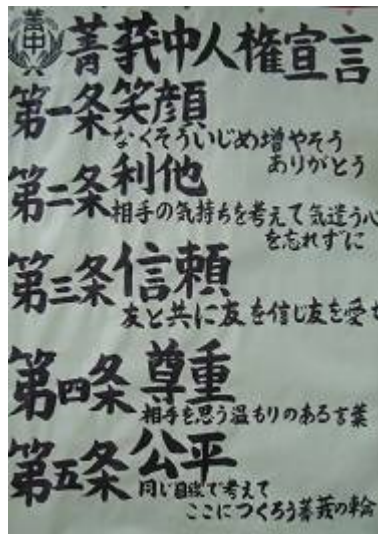 菁中
菁莪中人権宣言
第一条 笑顔
なくそういじめ増やそう
ありがとう
第二条 利他
相手の気持ちを考えて気遣う心
を忘れずに
第三条 信頼
友と共に友を信じ友を愛せ
第四条 尊重
相手を思う温もりのある言葉
第五条 公平
同じ目線で考えて
ここにつくろう菁莪の輪